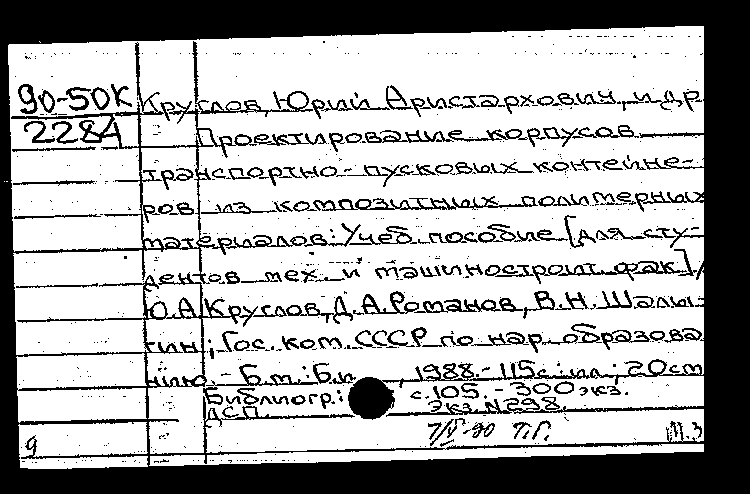 90-50К Круглов, Юрий Аристархович, и др
2284 Проектирование корпусов
транспортно-пусковых контейне-
ров из композитных полимерных
материалов: Учеб. пособие [для сту-
дентов мех. и машиностроит. фак]/
Ю.А.Круглов, Д.А.Романов, В.Н.Шалы-
гин; Гос. ком. СССР по нар. образова
нию. - Б.м.: Б.и , 1988.- 115с.: ил.; 20см
Библиогр.: с.105. - 300 экз.
ДСП. Экз. N298.
9 7/V-90 Т.Г. М.З